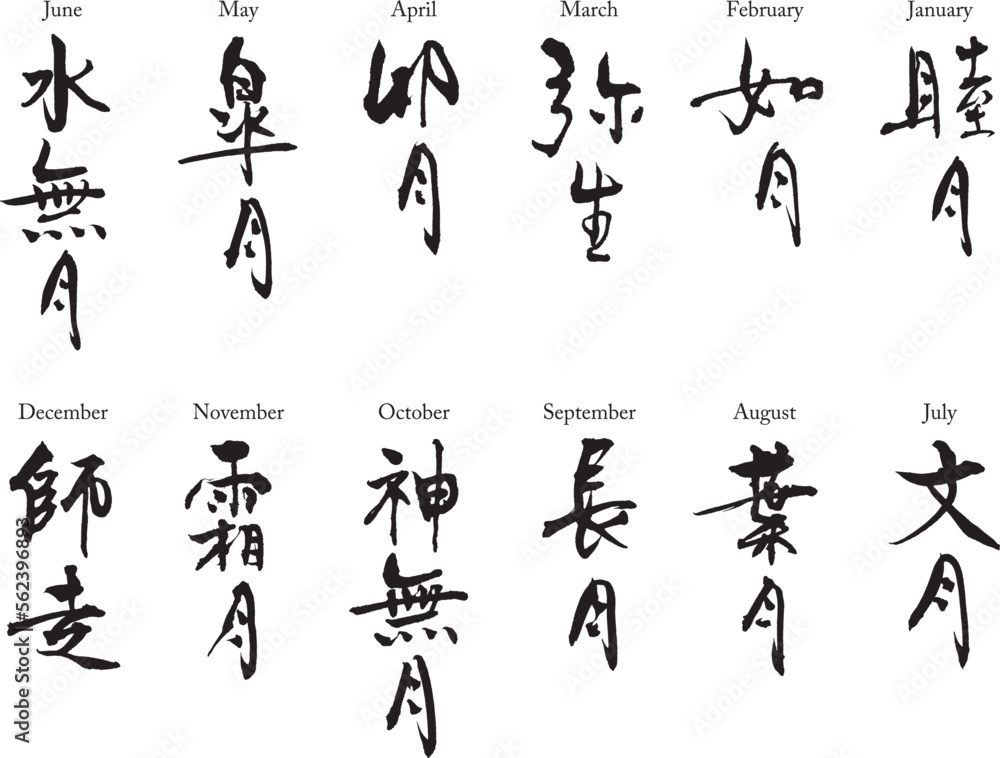 June
水無月
May
皐月
April
卯月
March
弥生
February
如月
January
睦月
December
師走
November
霜月
October
神無月
September
長月
August
葉月
July
文月
Adobe Stock | #562396893
Adobe Stock